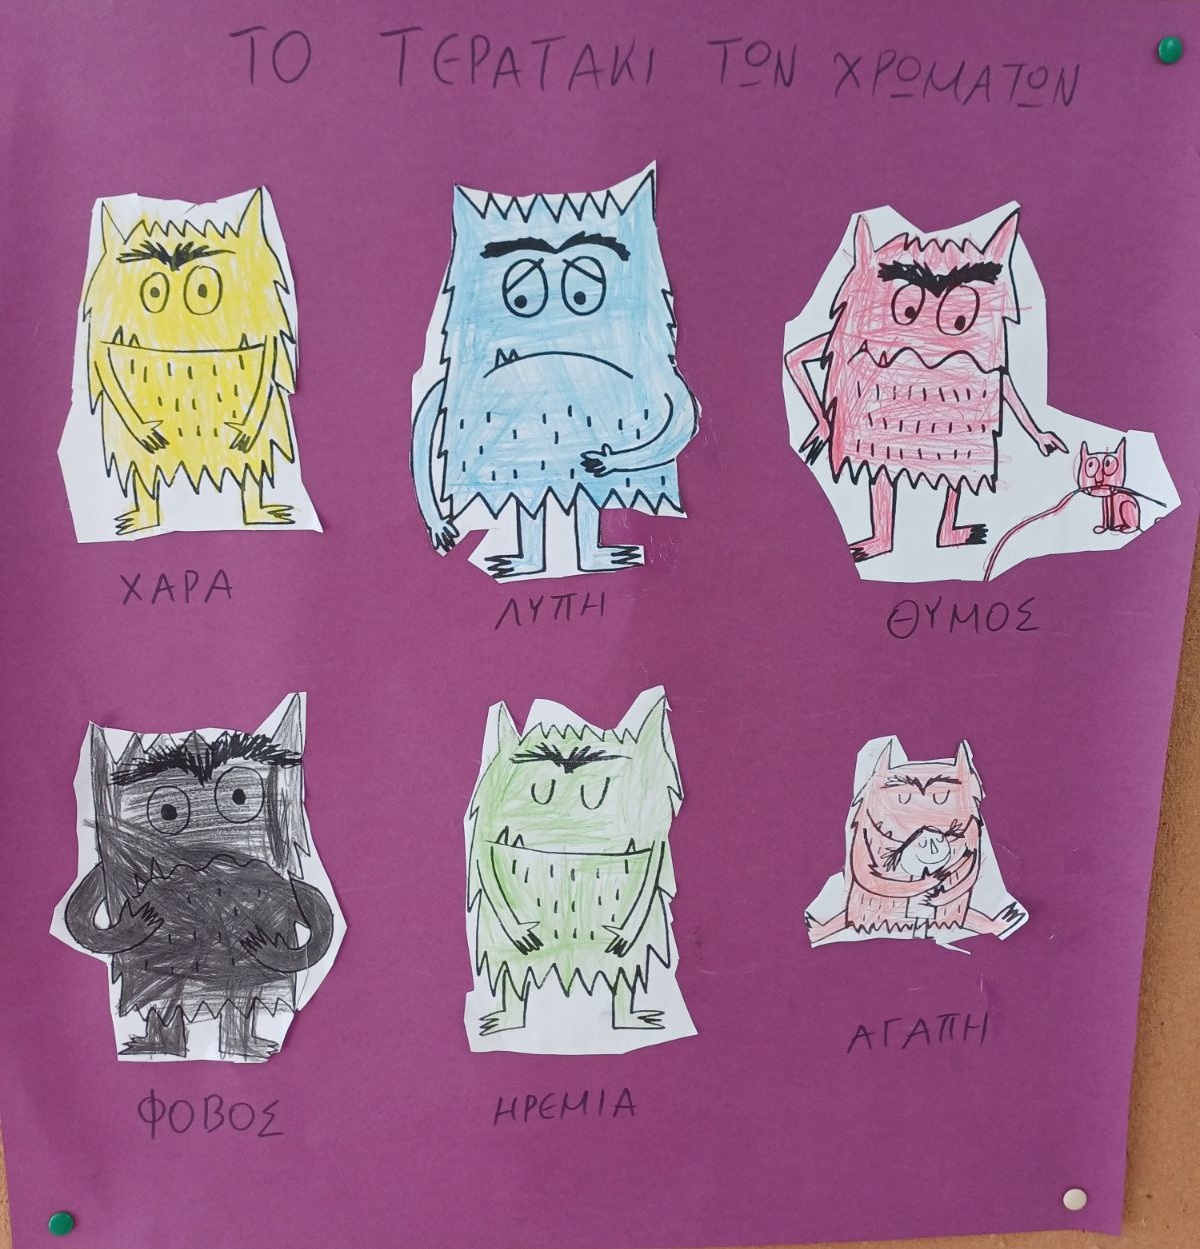 ΤΟ ΤΕΡΑΤΑΚΙ ΤΩΝ ΧΡΩΜΑΤΩΝ
ΧΑΡΑ
ΛΥΠΗ
ΘΥΜΟΣ
ΦΟΒΟΣ
ΗΡΕΜΙΑ
ΑΓΑΠΗ